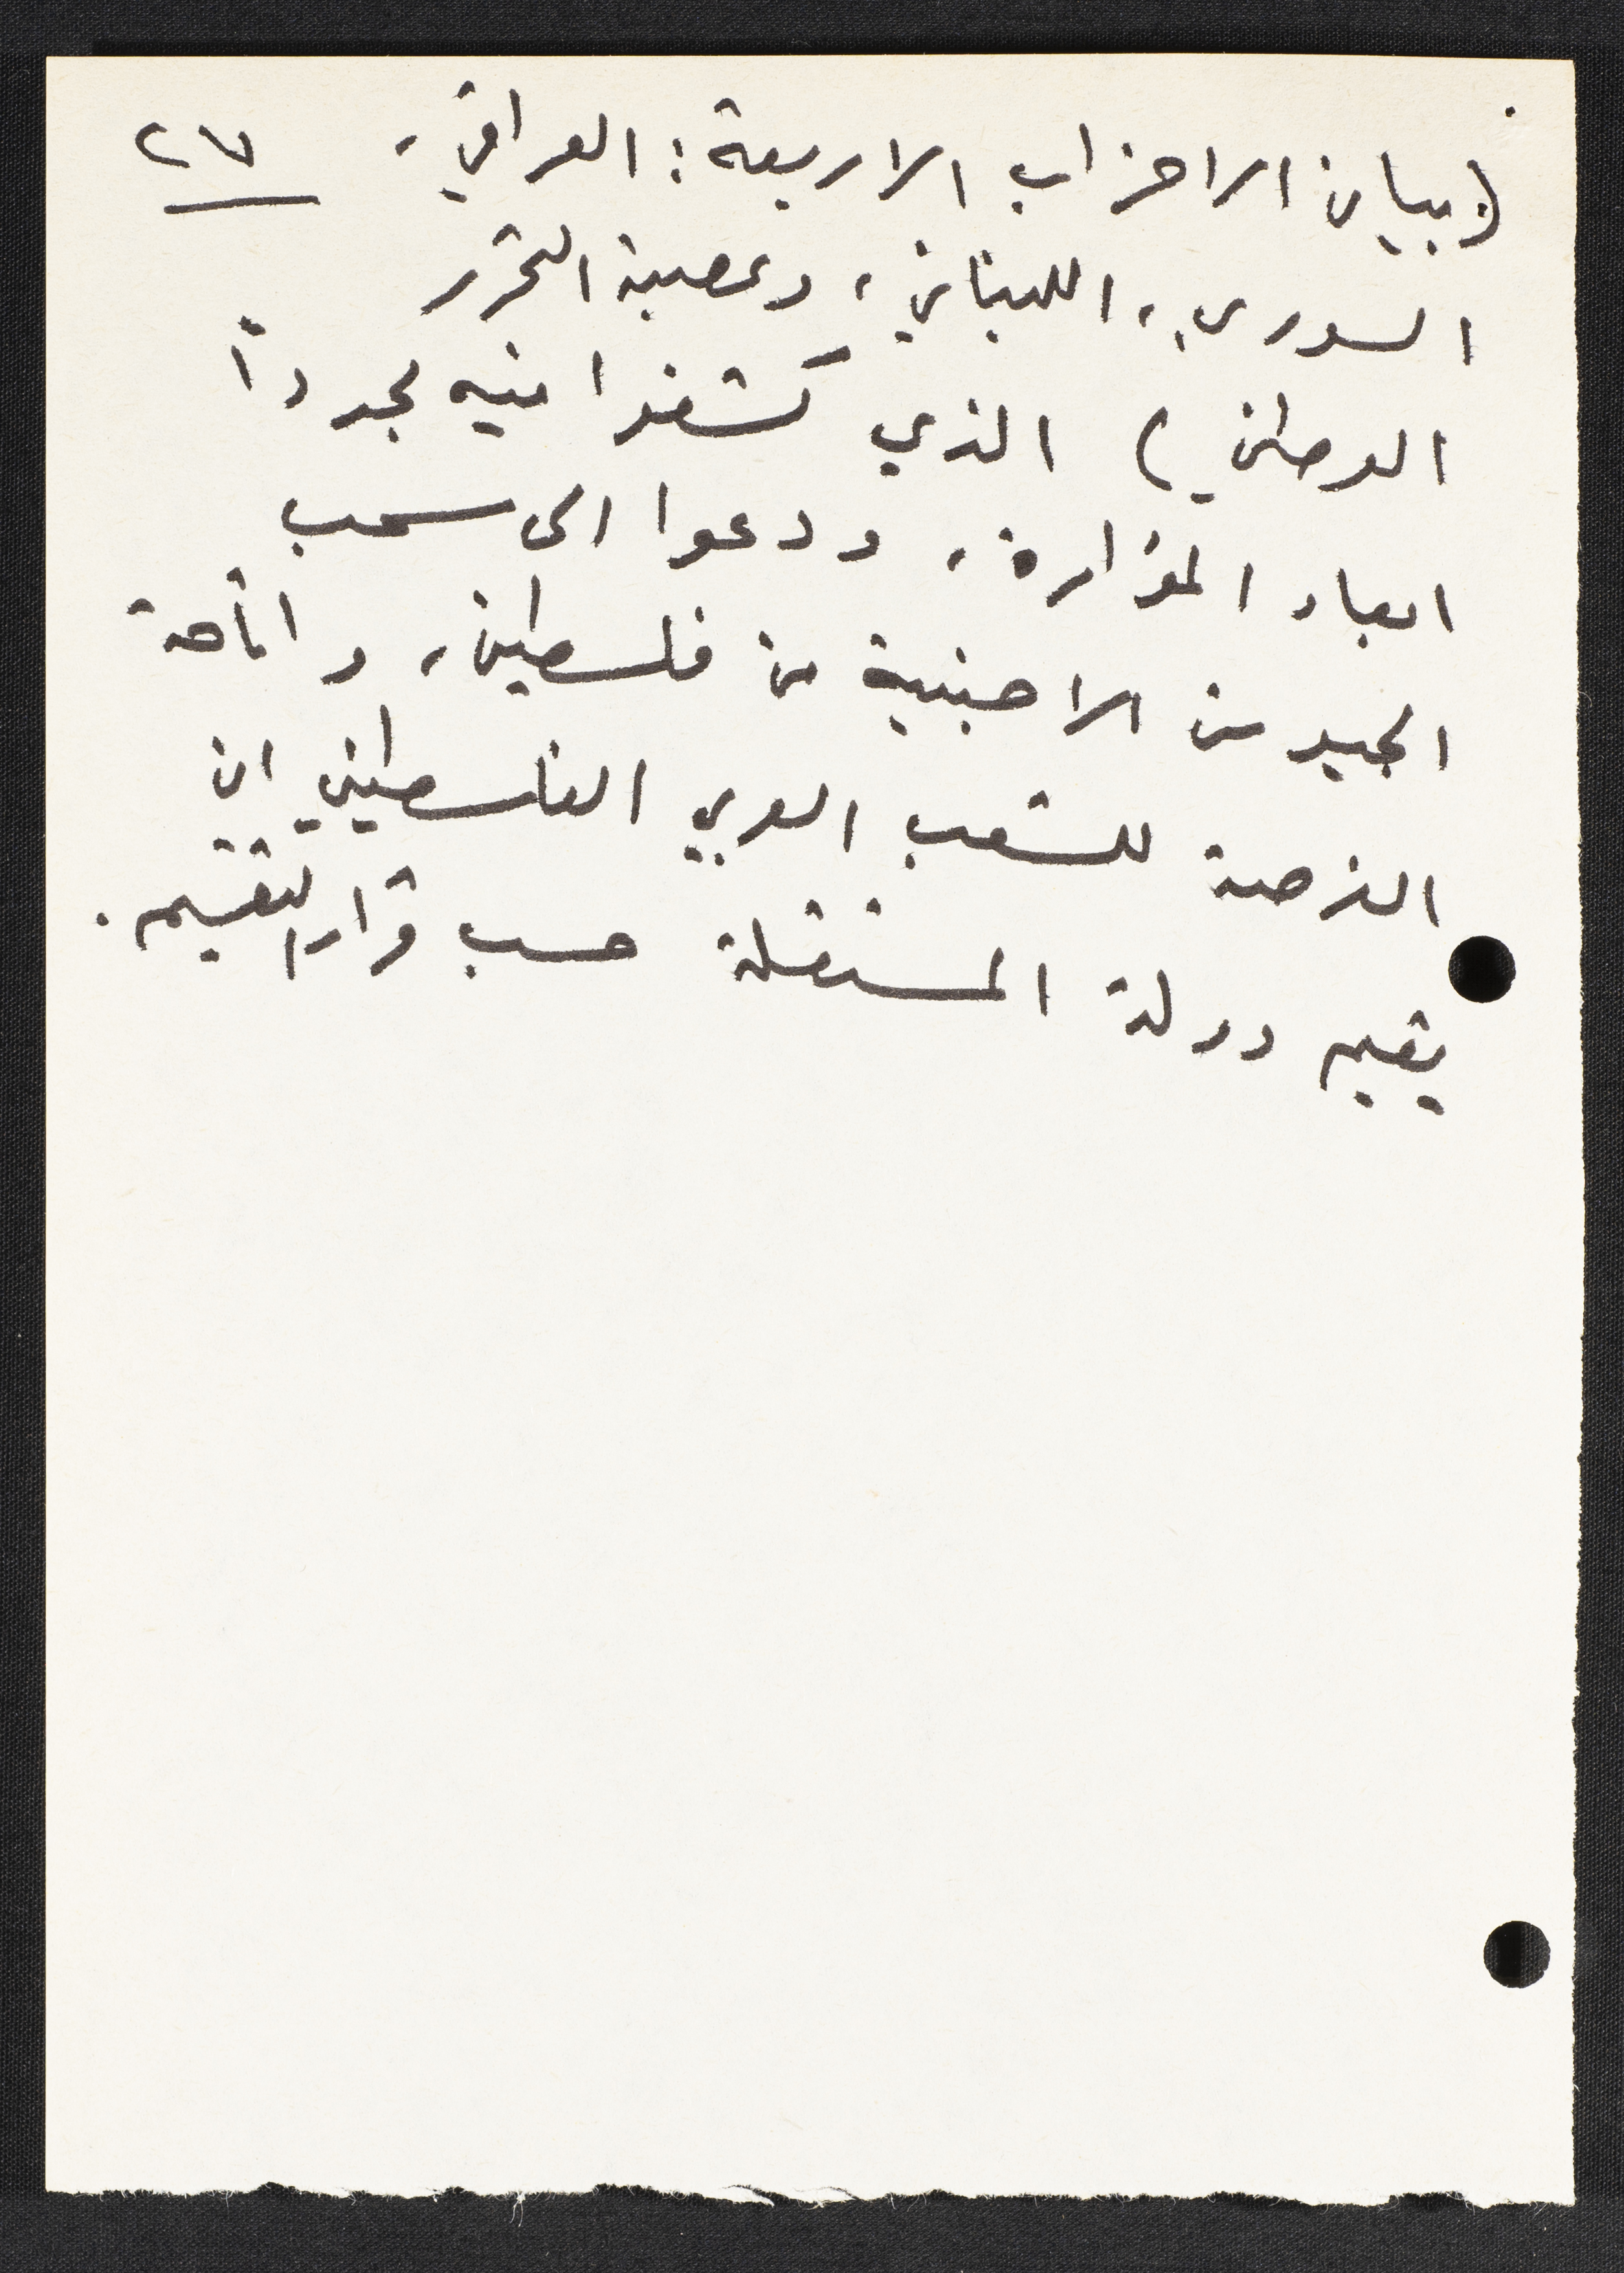 ٢٧
(بيان الاحزاب الاربعة: العراقي،
السوري، اللبناني، وعصبة التحرر
الوطني) الذي كشفوا فيه مجدداً
ابعاد المؤامرة، ودعوا الى سحب
الجيوش الاجنبية من فلسطين، واتاحة
الفرصة للشعب العربي الفلسطيني ان
يقيم دولة المستقلة حسب قرار التقسيم.